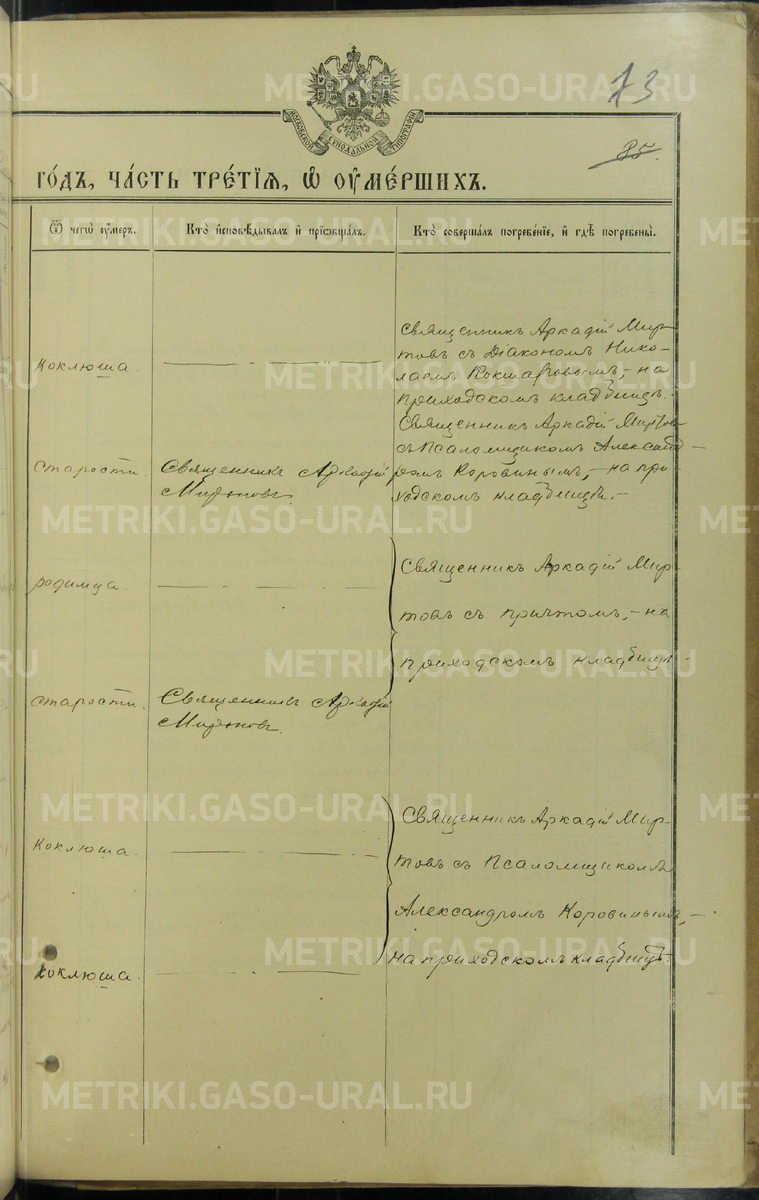 73
85.
МОСКОВСКОЙ СѴНОДАЛЬНОЙ ТИПОГРАФІИ
го́дъ, ча́сть тре́тїѧ, ѡ҆ ᲂу҆ме́ршихъ.
Ѿ чегѡ̀ ᲂу҆́меръ.
Кто̀ и҆сповѣ́дывалъ и҆ прїѡбща́лъ.
Кто̀ соверша́лъ погребе́нїе, и҆ гдѣ̀ погребены̀.
Коклюша.
Священникъ Аркадій Мир-
товъ съ Діакономъ Нико-
лаемъ Кокшаровымъ, – на
приходскомъ кладбищѣ.
старости.
Священникъ Аркадій
Миртовъ.
Священникъ Аркадій Миртовъ
съ Псаломщикомъ Александ-
ромъ Коровинымъ, – на при-
ходскомъ кладбищѣ. –
родимца.
Священникъ Аркадій Мир-
товъ съ причтомъ, – на
приходскомъ кладбищѣ. –
старости.
Священникъ Аркадій
Миртовъ.
Коклюша.
Священникъ Аркадій Мир-
товъ съ Псаломщикомъ
Александромъ Коровинымъ, –
на приходскомъ кладбищѣ.
Коклюша.
METRIKI.GASO-URAL.RU